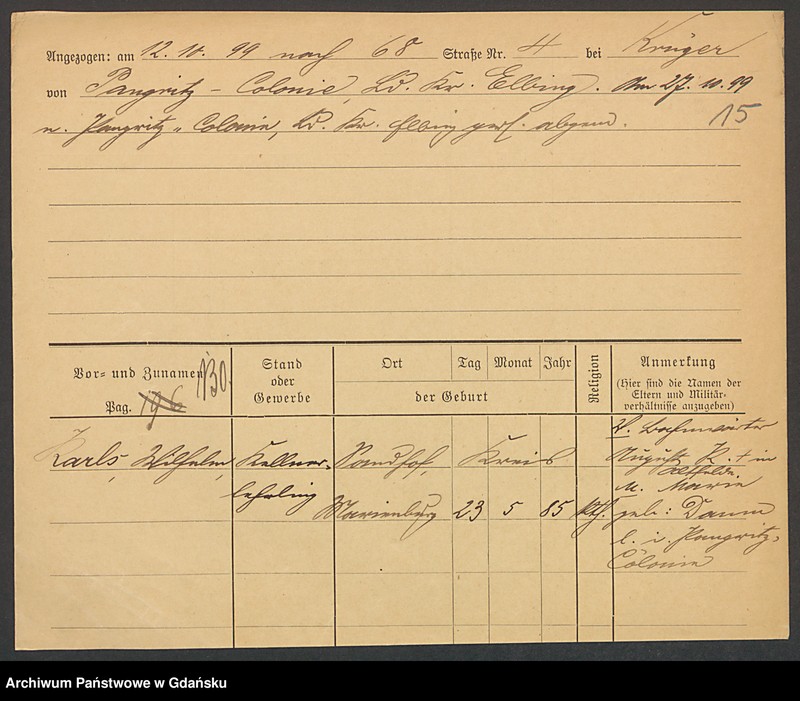 Angezogen: am 12. 10. 99 nach 68 Straße Nr. 4 bei Krüger
von Pangritz-Colonie, Ld. Kr. Elbing. Am 27. 10. 99
n. Pangritz-Colonie, Ld. Kr. Elbing pers. abgem. 15
Vor- und Zunamen
Pag. 196 130.
Stand
oder
Gewerbe
Ort Tag Monat Jahr
der Geburt
Religion
Anmerkung
(Hier sind die Namen der
Eltern und Militär-
verhältnisse anzugeben)
Karls, Wilhelm, Kellner-
lehrling
Sandhof, Kreis
Marienburg 23 5 85 kth.
V. Bahnwärter
August K. † in
Altfelde.
M. Marie
geb: Damm
l. i. Pangritz-
Colonie
Archiwum Państwowe w Gdańsku